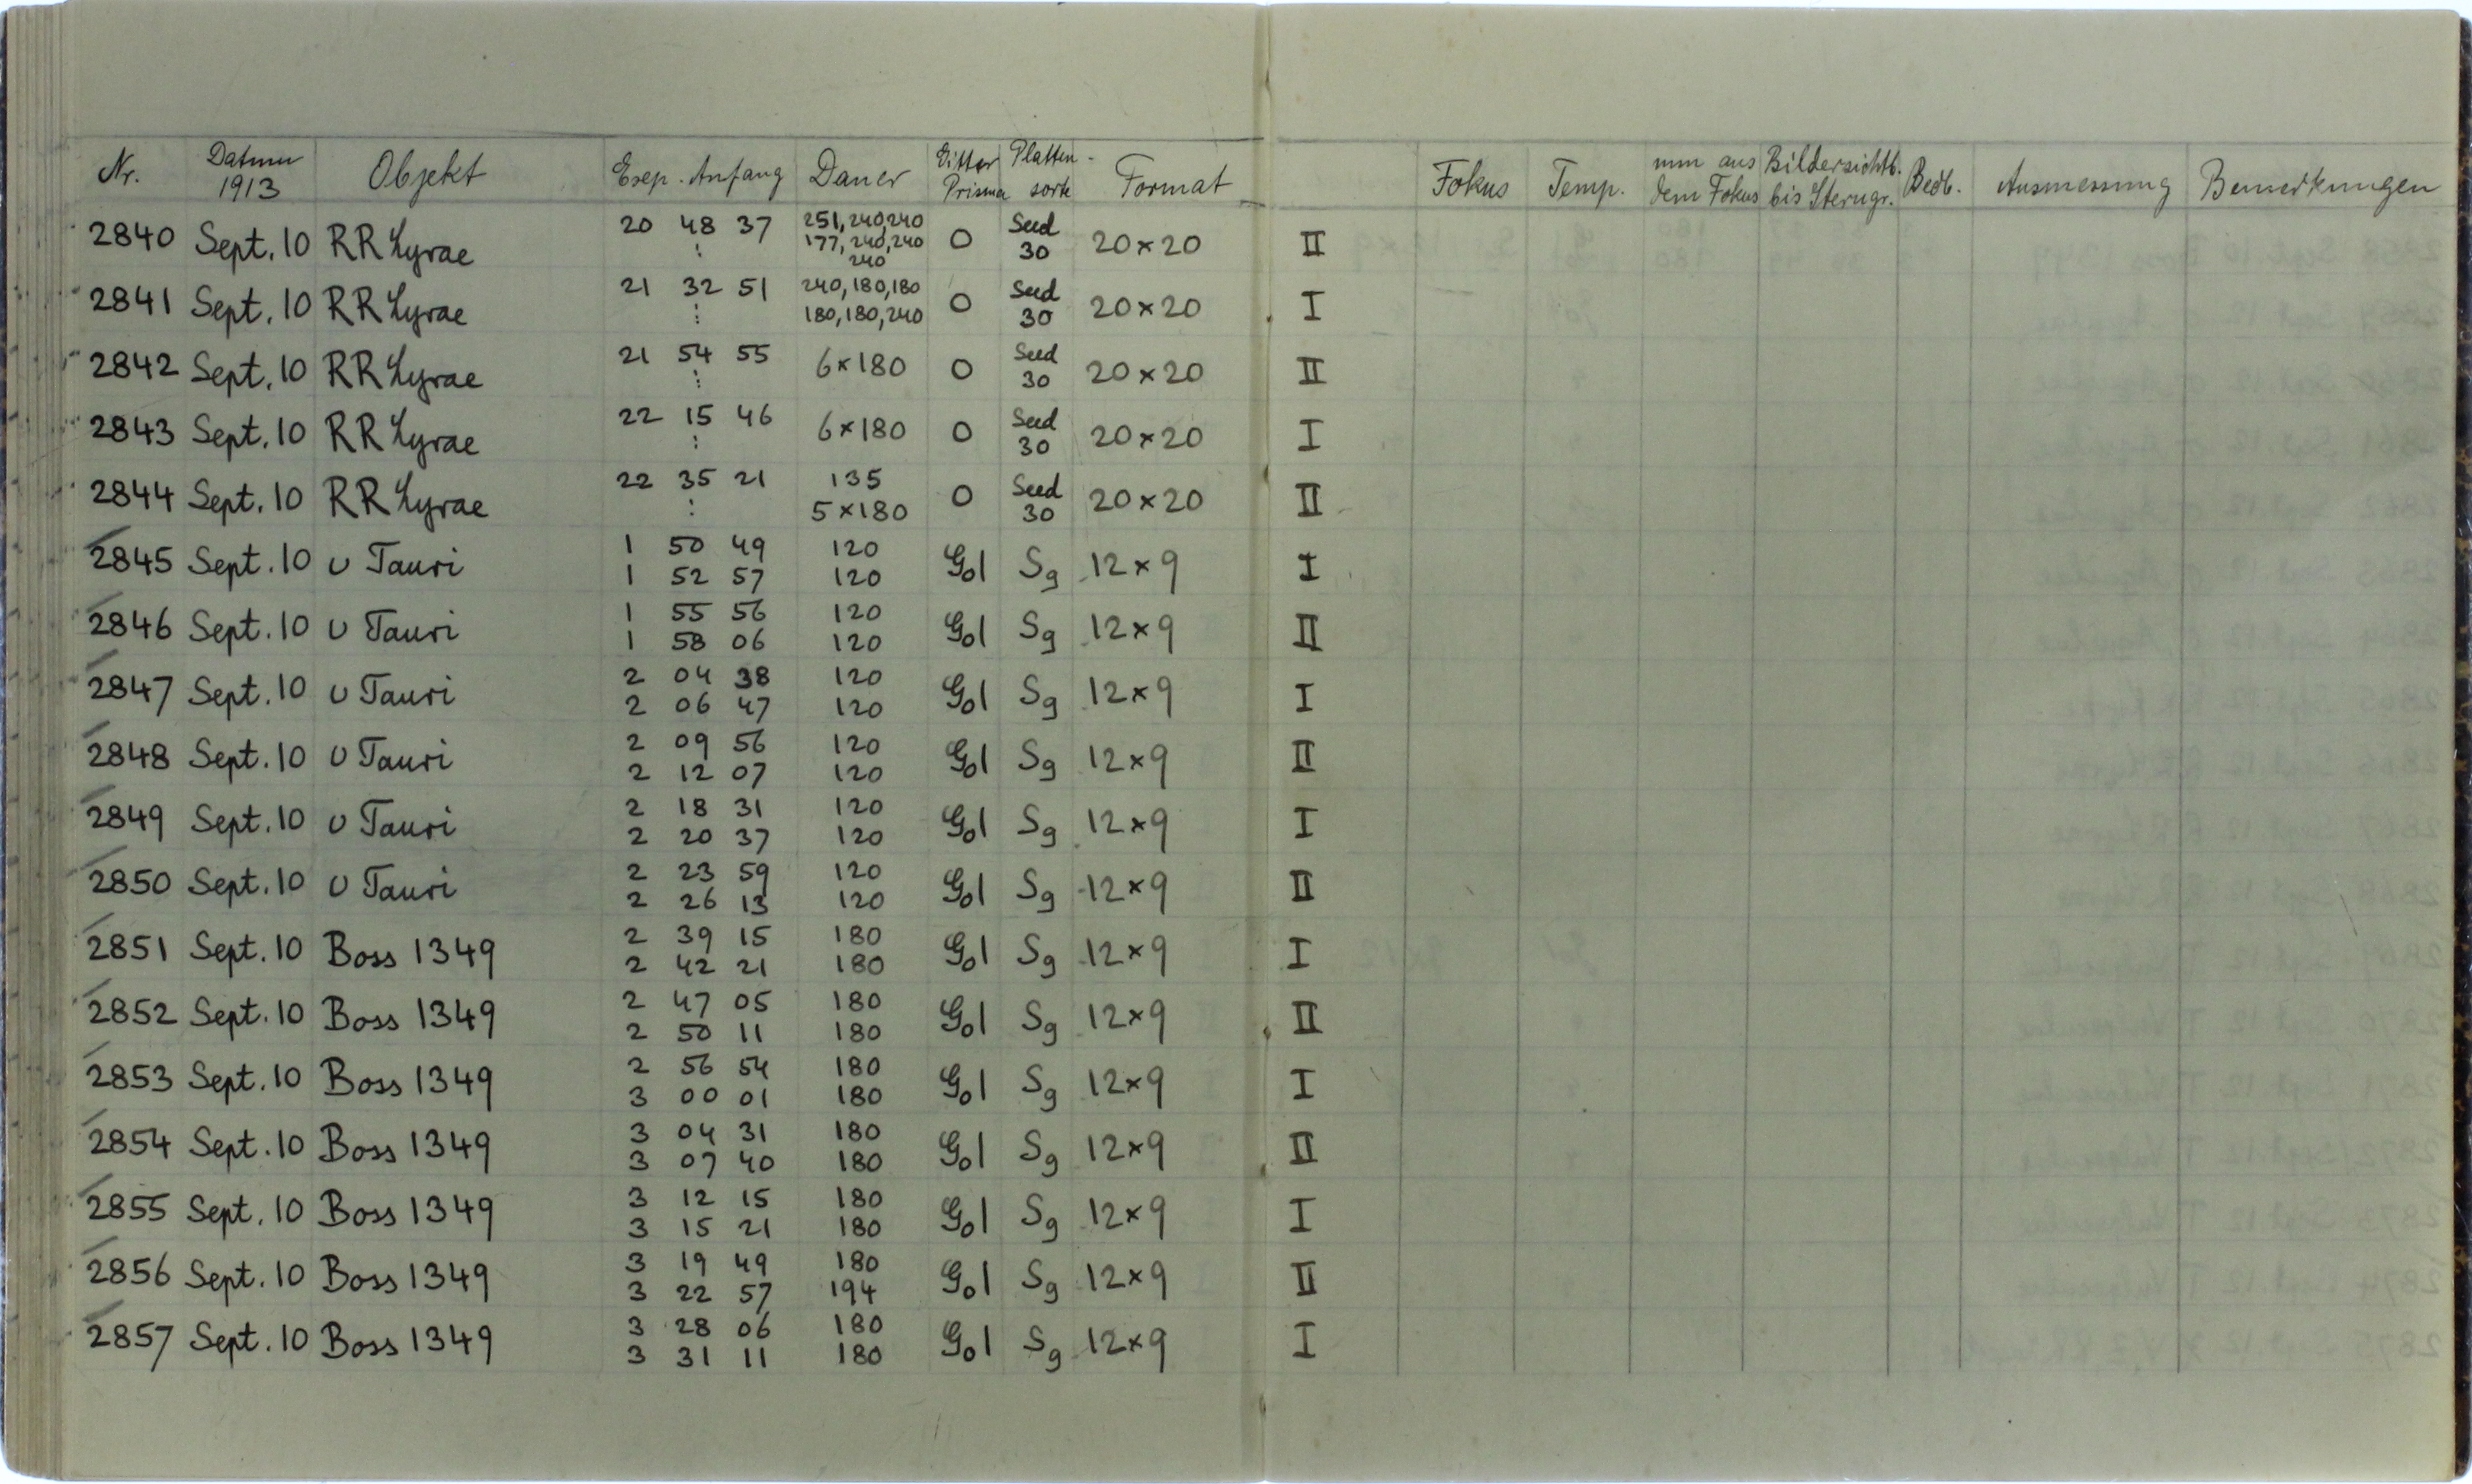 Nr. Datum 1913 Objekt Exp. Anfang Dauer Gitter Prisma Platten-sorte Format Fokus Temp. mm aus dem Fokus Bildersichtb. bis Sterngr. Beob. Ausmessung Bemerkungen
2840 Sept. 10 RR Lyrae 20 48 37 251, 240, 240 0 Seed 30 20×20 II
⋮ 177, 240, 240
240
2841 Sept. 10 RR Lyrae 21 32 51 240, 180, 180 0 Seed 30 20×20 I
⋮ 180, 180, 240
2842 Sept. 10 RR Lyrae 21 54 55 6×180 0 Seed 30 20×20 II
⋮
2843 Sept. 10 RR Lyrae 22 15 46 6×180 0 Seed 30 20×20 I
⋮
2844 Sept. 10 RR Lyrae 22 35 21 135 0 Seed 30 20×20 II
⋮ 5×180
2845 Sept. 10 υ Tauri 1 50 49 120 Gol Sg 12×9 I
1 52 57 120
2846 Sept. 10 υ Tauri 1 55 56 120 Gol Sg 12×9 II
1 58 06 120
2847 Sept. 10 υ Tauri 2 04 38 120 Gol Sg 12×9 I
2 06 47 120
2848 Sept. 10 υ Tauri 2 09 56 120 Gol Sg 12×9 II
2 12 07 120
2849 Sept. 10 υ Tauri 2 18 31 120 Gol Sg 12×9 I
2 20 37 120
2850 Sept. 10 υ Tauri 2 23 59 120 Gol Sg 12×9 II
2 26 13 120
2851 Sept. 10 Boss 1349 2 39 15 180 Gol Sg 12×9 I
2 42 21 180
2852 Sept. 10 Boss 1349 2 47 05 180 Gol Sg 12×9 II
2 50 11 180
2853 Sept. 10 Boss 1349 2 56 54 180 Gol Sg 12×9 I
3 00 01 180
2854 Sept. 10 Boss 1349 3 04 31 180 Gol Sg 12×9 II
3 07 40 180
2855 Sept. 10 Boss 1349 3 12 15 180 Gol Sg 12×9 I
3 15 21 180
2856 Sept. 10 Boss 1349 3 19 49 180 Gol Sg 12×9 II
3 22 57 194
2857 Sept. 10 Boss 1349 3 28 06 180 Gol Sg 12×9 I
3 31 11 180